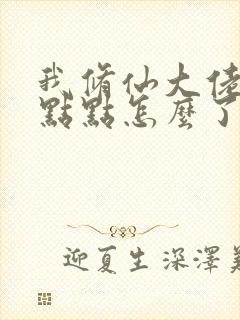 我修仙大佬
點點怎麼了
迎夏生深澤美